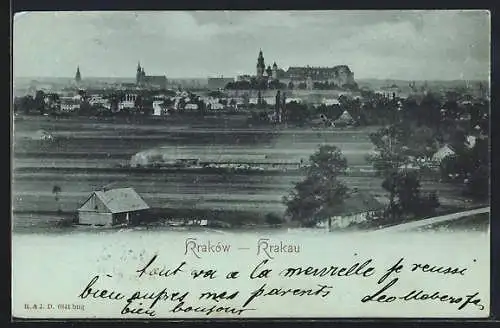 Kraków — Krakau
tout va à la merveille je reussi
bien auprès mes parents
bien bonjour
R. & J. D. 6841